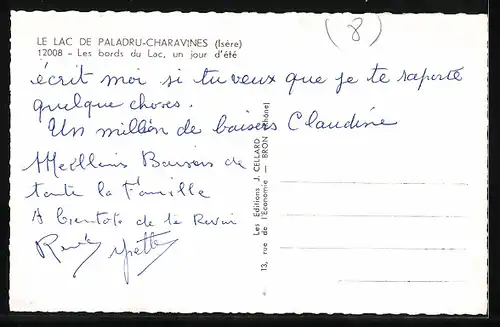 (8)
LE LAC DE PALADRU-CHARAVINES (Isère)
12008 - Les bords du Lac, un jour d'été
écrit moi si tu veux que je te raporte
quelque choses.
Un million de baisers Claudine
Meilleurs Baisers de
toute la Famille
A bientôt de te Revoir
Renée Yvette
Les Editions J. CELLARD
13, rue de l'Economie - BRON (Rhône)